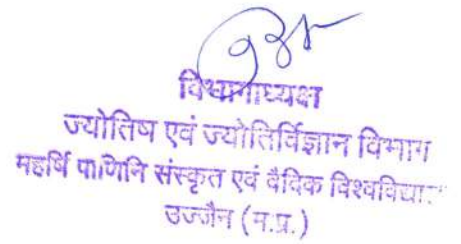 विभागाध्यक्ष
ज्योतिष एवं ज्योतिर्विज्ञान विभाग
महर्षि पाणिनि संस्कृत एवं वैदिक
उज्जैन (म.प्र.)